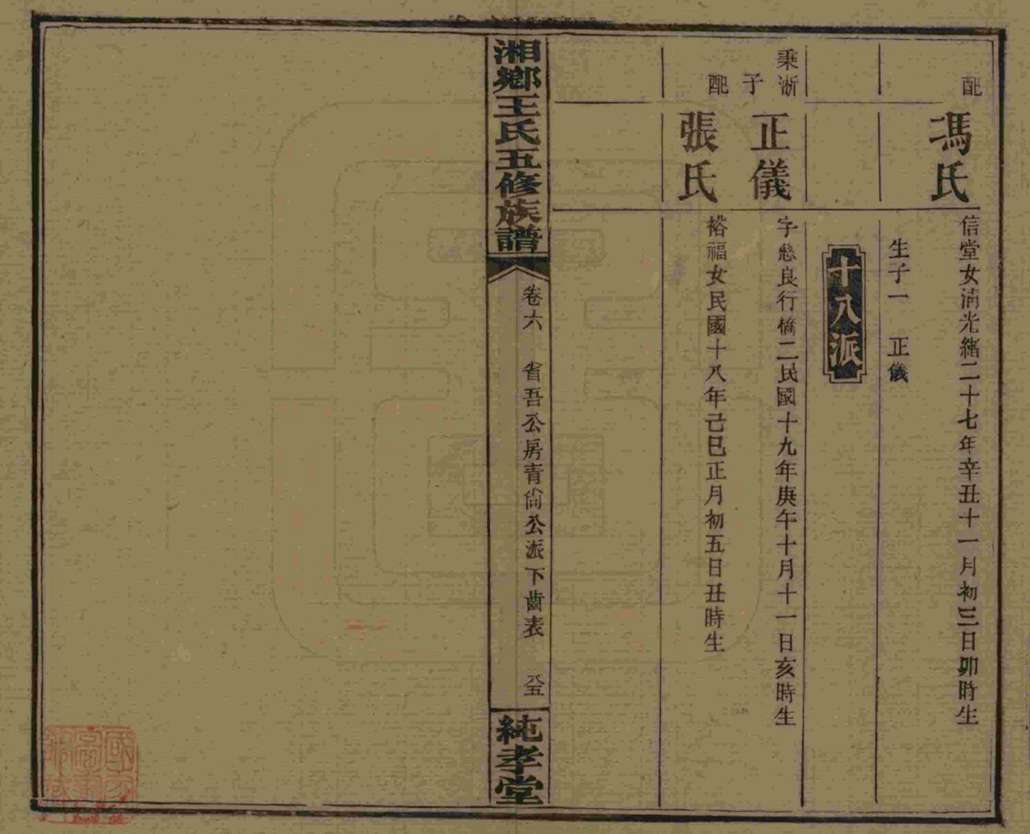 配
馮氏
信堂女清光緒二十七年辛丑十一月初三日卯時生
生子一　正儀
十八派
秉淅子
正儀
字慈良行橋二民國十九年庚午十月十一日亥時生
配
張氏
裕福女民國十八年己巳正月初五日丑時生
湘鄉王氏五修族譜
卷六　省吾公房青尚公派下齒表　八五
純孝堂